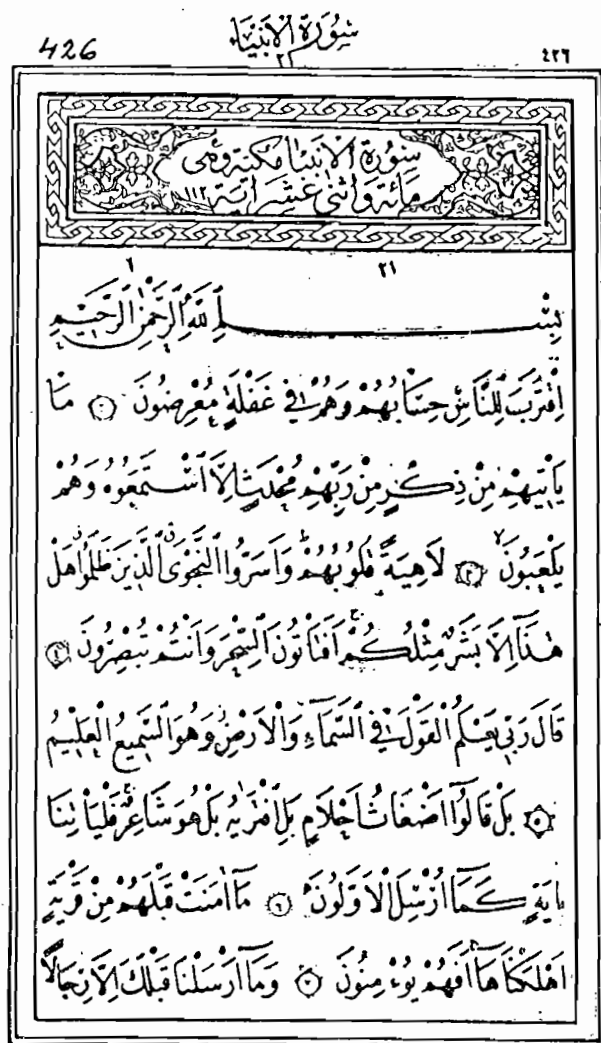 426 سُورَةُ الْاَنْبِيَاءِ ٤٢٦
٢١
سُورَةُ الْاَنْبِيَاءِ مَكِّيَّةٌ وَهِىَ
مِائَةٌ وَاثْنَى عَشَرَ اٰيَةً ١١٢
٢١
بِسْمِ اللّٰهِ الرَّحْمٰنِ الرَّحِيمِ
اِقْتَرَبَ لِلنَّاسِ حِسَابُهُمْ وَهُمْ فِى غَفْلَةٍ مُعْرِضُونَ ۝٢ مَا
يَاْتِيهِمْ مِنْ ذِكْرٍ مِنْ رَبِّهِمْ مُحْدَثٍ اِلَّا اسْتَمَعُوهُ وَهُمْ
يَلْعَبُونَ ۝٣ لَاهِيَةً قُلُوبُهُمْ وَاَسَرُّوا النَّجْوَى الَّذِينَ ظَلَمُوا هَلْ
هٰذَا اِلَّا بَشَرٌ مِثْلُكُمْ اَفَتَاْتُونَ السِّحْرَ وَاَنْتُمْ تُبْصِرُونَ ۝٤
قَالَ رَبِّى يَعْلَمُ الْقَوْلَ فِى السَّمَاءِ وَالْاَرْضِ وَهُوَ السَّمِيعُ الْعَلِيمُ
۝٥ بَلْ قَالُوا اَضْغَاثُ اَحْلَامٍ بَلِ افْتَرٰيهُ بَلْ هُوَ شَاعِرٌ فَلْيَاْتِنَا
بِاٰيَةٍ كَمَا اُرْسِلَ الْاَوَّلُونَ ۝٦ مَا اٰمَنَتْ قَبْلَهُمْ مِنْ قَرْيَةٍ
اَهْلَكْنَاهَا اَفَهُمْ يُؤْمِنُونَ ۝٧ وَمَا اَرْسَلْنَا قَبْلَكَ اِلَّا رِجَالًا